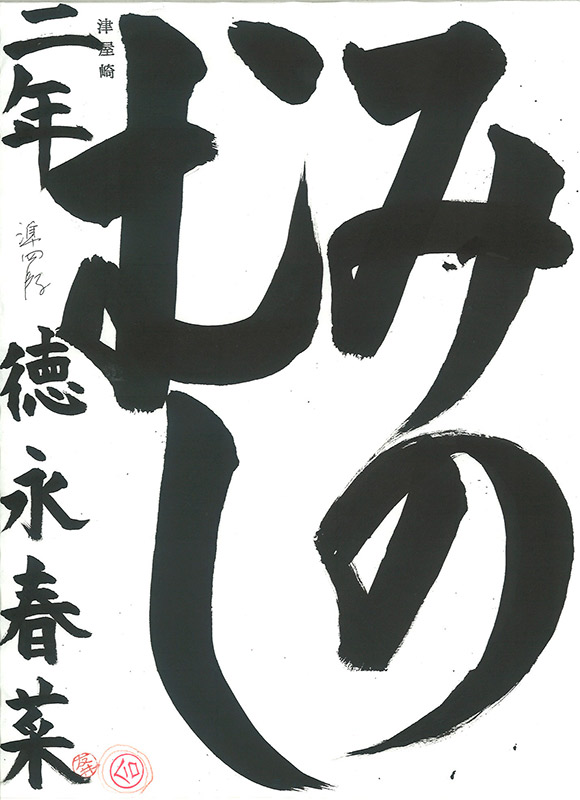 みの
むし
津屋崎
二年 準四段 徳永春菜